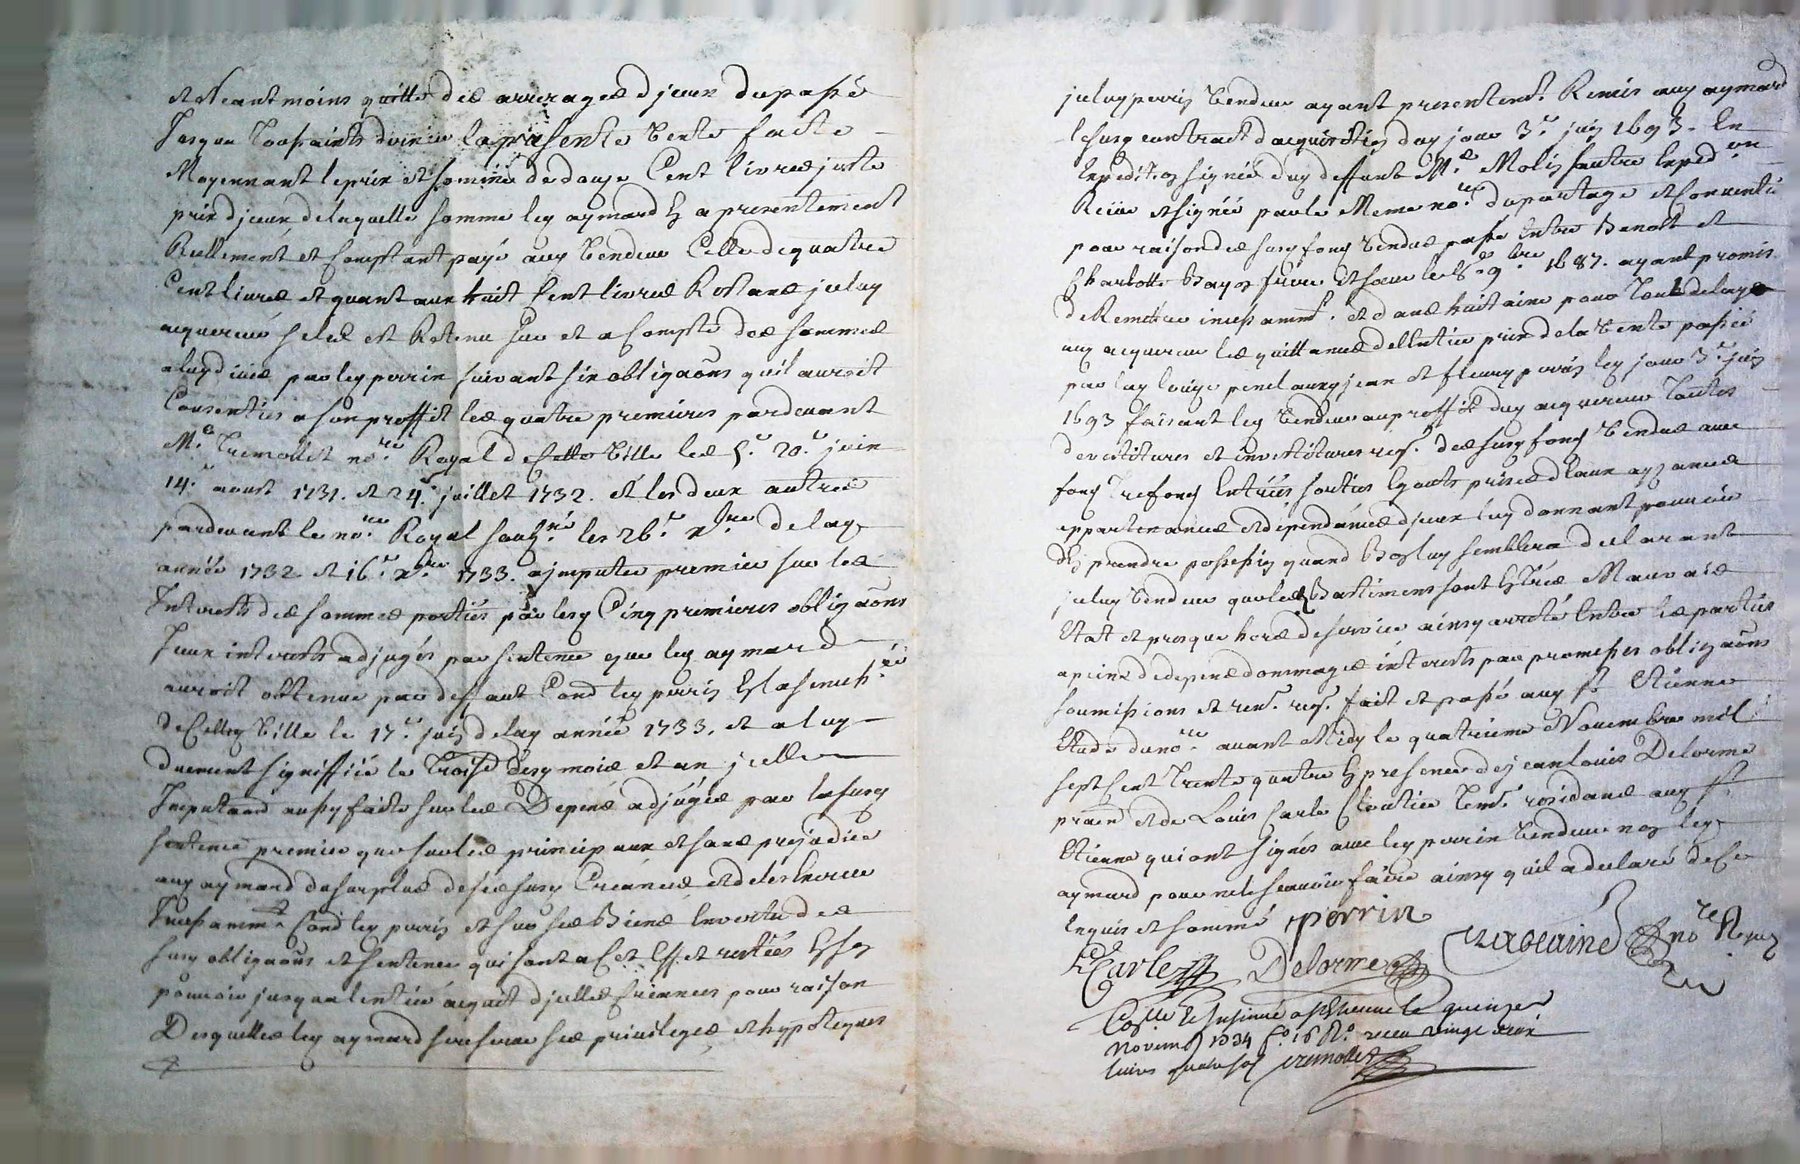 et Neantmoins quitte des arrerages d'jceux du passé
Jusqua Toussaints dernier la presente vente faite
Moyennant le prix et somme de douze Cent livres juste
prix d'jceux de laquelle somme ledit aymard En a presentement
Reellement et Comptant payé aud vendeur Celle de quatre
Cent livres et quant aux huit Cent livres Restans jceluy
acquereur s'est Retenu sur et a Compte des sommes
a luy dües par led perrin suivant six obligaõns qu'il auroit
Consenties a son proffit les quatre premieres pardevant
Me Tremollet nore Royal de Cette Ville les 5e 20e juin
14e aoust 1731. et 24e juillet 1732. et les deux autres
pardevant le nore Royal soussigné les 26e xbre delad
année 1732. et 16e xbre 1733. a jmputer premier sur les
Interests des sommes portées par lesd Cinq premieres obligaõns
Iceux interests adjugés par sentence que led aymard
auroit obtenue par deffaut Contre led perrin En la senechée
de Cetted Ville le 17e juin delad année 1733. et a luy
duement signiffiée le Trois desd mois et an jcelle
Imputaõn aussy faite sur les Depens adjugés par lasusd
sentence premier que sur les principaux et sans prejudice
aud aymard du surplus de ses susd Creances et de les Exercer
Incessamment Contre led perrin et sur ses Biens En vertu des
susd obligaõns et sentence qui sont a Cet Effet restées En son
pouvoir jusqua l'entier acquit d'jcelles Creances pour raison
Desquelles led aymard se reserve ses privileges et hypoteques
jceluy perrin vendeur ayant presentement Remis aud aymard
lesusd contract d'acquisition dud jour 3e juin 1693. En
Expedition signée dud deffunt Me Molin l'autre Expedon
Reçüe et signée par le Meme nore du partage et Convention
pour raison des susd fonds vendus passé Entre Benoît et
Charlotte Bayon frere et soeur le 8e 9bre 1687. ayant promis
de Remettre incessamment et dans huitaine pour Tout delay
aud acquereur les quittances de l'entier prix de la vente passée
par lad aux jean et fleury perrin led jour 3e juin
1693 faisant led vendeur au proffit dud acquereur Toutes
devestitures et investitures req. des susd fonds vendus avec
fonds Trefonds Entrées sorties Egouts prises d'eaux ayzances
appartenances et dépendances d'jceux luy donnant pouvoir
d'En prendre possession quand Bon luy semblera declarant
jceluy vendeur que les Bastiments sont En Tres Mauvais
Etat et presque hors de service ainsy arreté Entre les parties
a peine de depens dommages interests par promesses obligaõns
soumissions et ren. req. fait et passé aud St Etienne
Etude du nore avant Midy le quatrieme Novembre mil
sept Cent Trente quatre En presence de jean louis Delorme
praen et de Louis Carle Cloutier Tem. residans aud St
Etienne qui ont signés avec led perrin vendeur non led
aymard pour ne le sçavoir faire ainsy qu'il a declaré de Ce
Enquis et sommé perrin
LCarle Delorme nore Royal
Conlle Et Insinué a St Etienne le quinze
Novemb 1734 fo 16 Ro receu vingt deux
livres quatre sols Tremollet